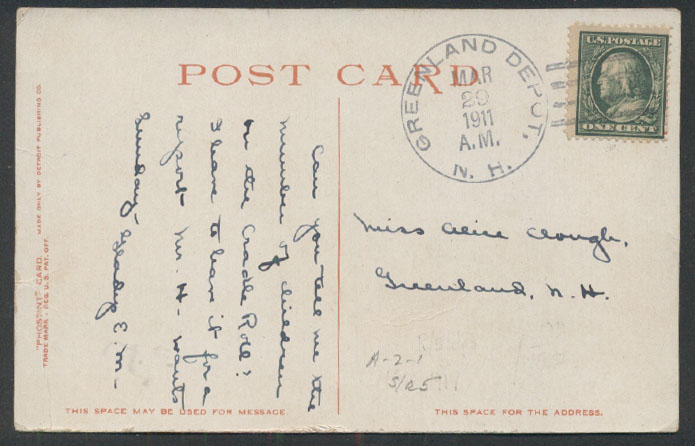 POST CARD
GREENLAND DEPOT,
MAR
29
1911
A.M.
N. H.
U.S. POSTAGE
ONE CENT
Can you tell me the
number of children
on the Cradle Roll?
I have to have it for a
report Mr. H- wants
Sunday- Gladys E. M-
Miss Alice Clough,
Greenland, N. H.
A-2-1
S/R5
"PHOSTINT" CARD. MADE ONLY BY DETROIT PUBLISHING CO.
TRADE MARK - REG. U. S. PAT. OFF.
THIS SPACE MAY BE USED FOR MESSAGE
THIS SPACE FOR THE ADDRESS.